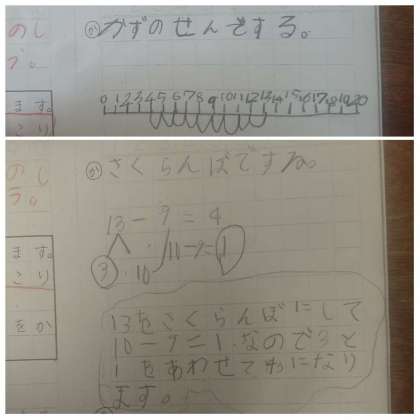 のし
㋕かずのせんをする。
ます。
こり
0 1 2 3 4 5 6 7 8 9 10 11 12 13 14 15 16 17 18 19 20
のし
う。
㋕さくらんぼですね。
13－9＝4
10－9＝1
3 10
ます。
こり
をか
13をさくらんぼにして
10－9＝1なので3と
1をあわせて4になり
ます。